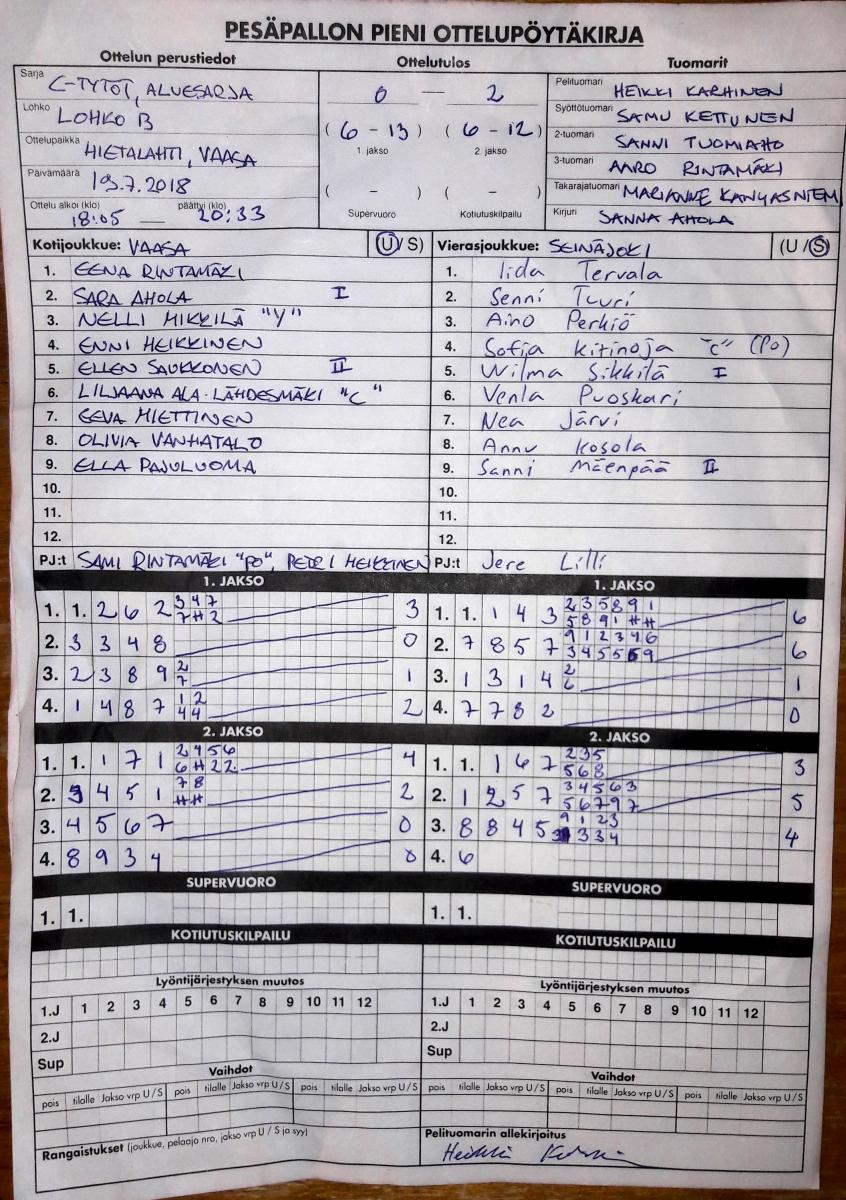 PESÄPALLON PIENI OTTELUPÖYTÄKIRJA
Ottelun perustiedot
Sarja C-TYTÖT, ALUESARJA
Lohko LOHKO B
Ottelupaikka HIETALAHTI, VAASA
Päivämäärä 19.7.2018
Ottelu alkoi (klo) päättyi (klo)
18:05 — 20:33
Ottelutulos
0 — 2
(6 - 13) (6 - 12)
1. jakso 2. jakso
( - ) ( - )
Supervuoro Kotiutuskilpailu
Tuomarit
Pelituomari HEIKKI KARHINEN
Syöttötuomari SAMU KETTUNEN
2-tuomari SANNI TUOMIAHO
3-tuomari AARO RINTAMÄKI
Takarajatuomari MARIANNE KANGASNIEMI
Kirjuri SANNA AHOLA
Kotijoukkue: VAASA (U / S)
1. EENA RINTAMÄKI
2. SARA AHOLA I
3. NELLI MIKKILÄ "Y"
4. ENNI HEIKKINEN
5. ELLEN SAUKKONEN II
6. LILJAANA ALA-LÄHDESMÄKI "C"
7. EEVA MIETTINEN
8. OLIVIA VANHATALO
9. ELLA PAJULUOMA
10.
11.
12.
PJ:t SAMI RINTAMÄKI "PO", PETRI HEIKKINEN
Vierasjoukkue: SEINÄJOKI (U / S)
1. Iida Tervala
2. Senni Tuuri
3. Aino Perkiö
4. Sofja Kitinoja "C" (PO)
5. Wilma Sikkilä I
6. Venla Puoskari
7. Nea Järvi
8. Annu Kosola
9. Sanni Mäenpää II
10.
11.
12.
PJ:t Jere Lilli
1. JAKSO
1. 1. 2 6 2 3 4 7 3
7 H 2
2. 3 3 4 8 0
3. 2 3 8 9 2 1
7
4. 1 4 8 7 1 2 2
4 4
2. JAKSO
1. 1. 1 7 1 2 4 5 6 4
6 H 2 2
2. 3 4 5 1 7 8 2
H H
3. 4 5 6 7 0
4. 8 9 3 4 0
SUPERVUORO
1. 1.
KOTIUTUSKILPAILU
1. JAKSO
1. 1. 1 4 3 2 3 5 8 9 1 6
5 8 9 1 H H
2. 7 8 5 7 9 1 2 3 4 6 6
3 4 5 5 6 9
3. 1 3 1 4 2 1
6
4. 7 7 8 2 0
2. JAKSO
1. 1. 1 6 7 2 3 5 3
5 6 8
2. 1 2 5 7 3 4 5 6 3 5
5 6 7 9 7
3. 8 8 4 5 9 1 2 3 4
3 3 4
4. 6
SUPERVUORO
1. 1.
KOTIUTUSKILPAILU
Lyöntijärjestyksen muutos
1.J 1 2 3 4 5 6 7 8 9 10 11 12
2.J
Sup
Vaihdot
pois tilalle Jakso vrp U / S pois tilalle Jakso vrp U / S pois tilalle Jakso vrp U / S
Rangaistukset (joukkue, pelaaja nro, jakso vrp U / S ja syy)
Lyöntijärjestyksen muutos
1.J 1 2 3 4 5 6 7 8 9 10 11 12
2.J
Sup
Vaihdot
pois tilalle Jakso vrp U / S pois tilalle Jakso vrp U / S pois tilalle Jakso vrp U / S
Pelituomarin allekirjoitus
Heikki